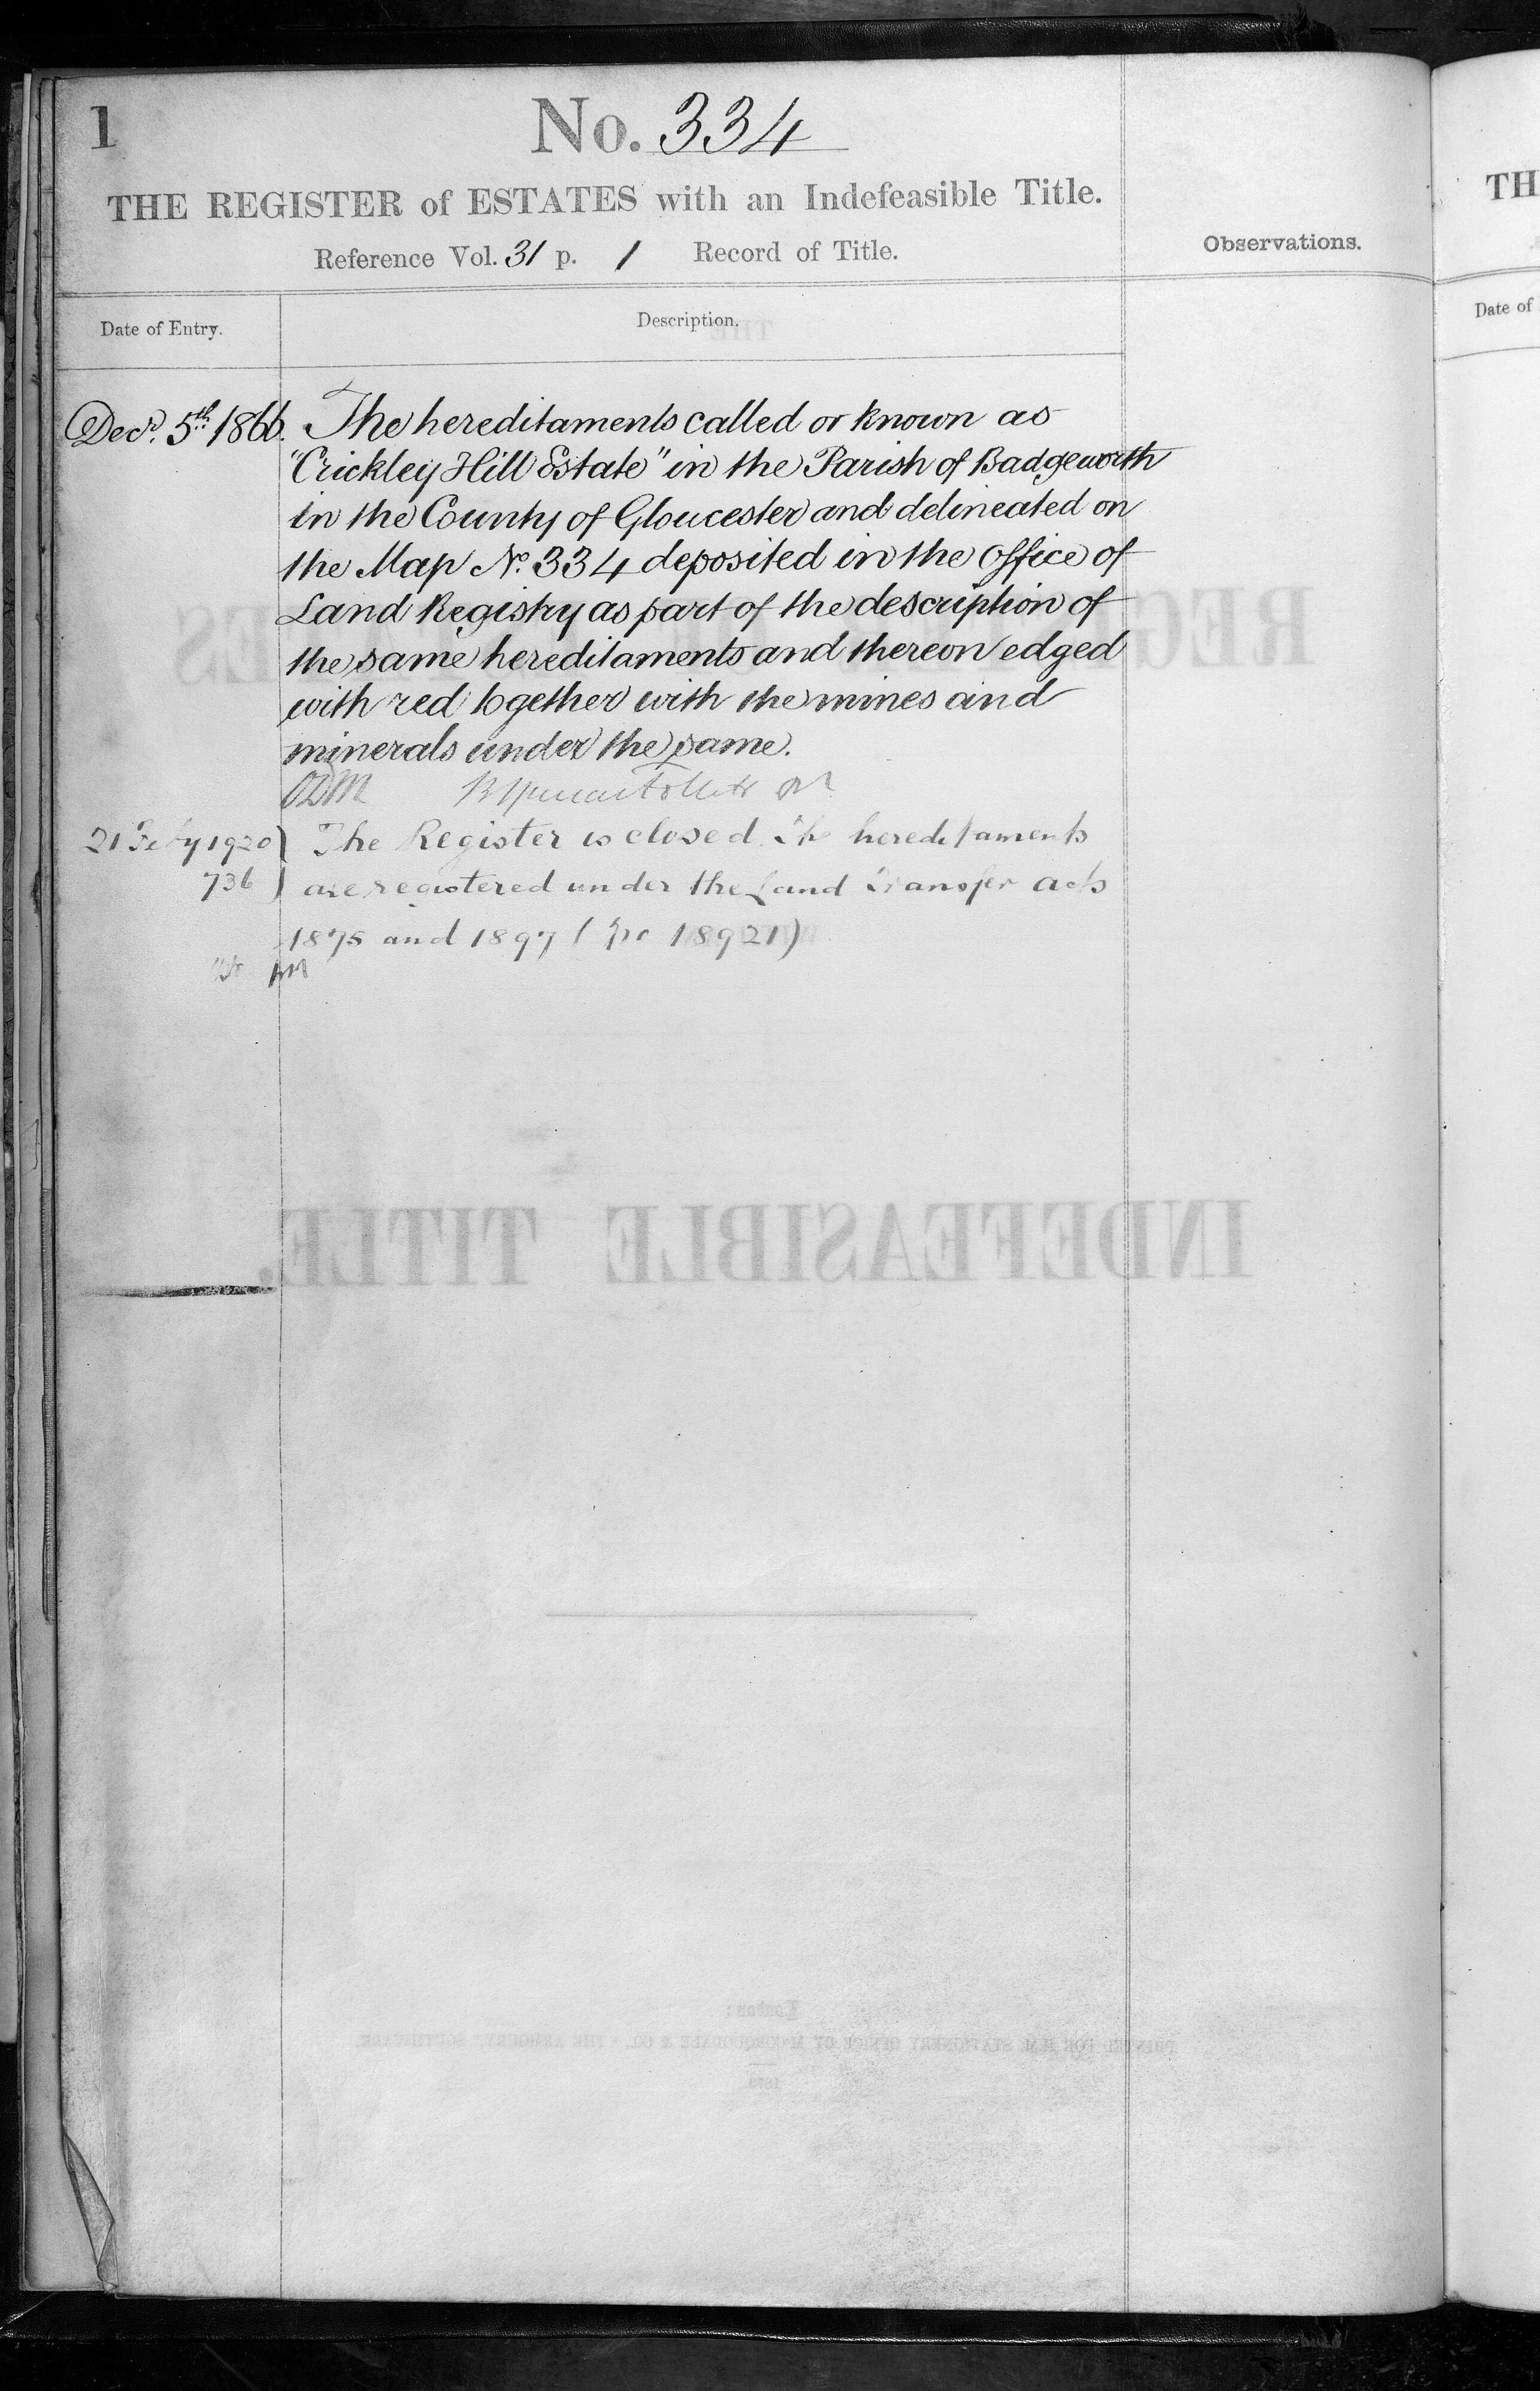 1
No. 334
THE REGISTER of ESTATES with an Indefeasible Title.
Reference Vol. 31 p. 1 Record of Title.
Observations.
Date of Entry.
Description.
Decr. 5th 1866. The hereditaments called or known as
"Crickley Hill Estate" in the Parish of Badgeworth
in the County of Gloucester and delineated on
the Map No. 334 deposited in the office of
Land Registry as part of the description of
the same hereditaments and thereon edged
with red together with the mines and
minerals under the same.
ODM Brent Follett
21 Feby 1920) The Register is closed. The hereditaments
736 ) are registered under the Land Transfer Acts
1875 and 1897 ( 18921)
TH
Date of
REG
INDEFEASIBLE TITLE.
London: